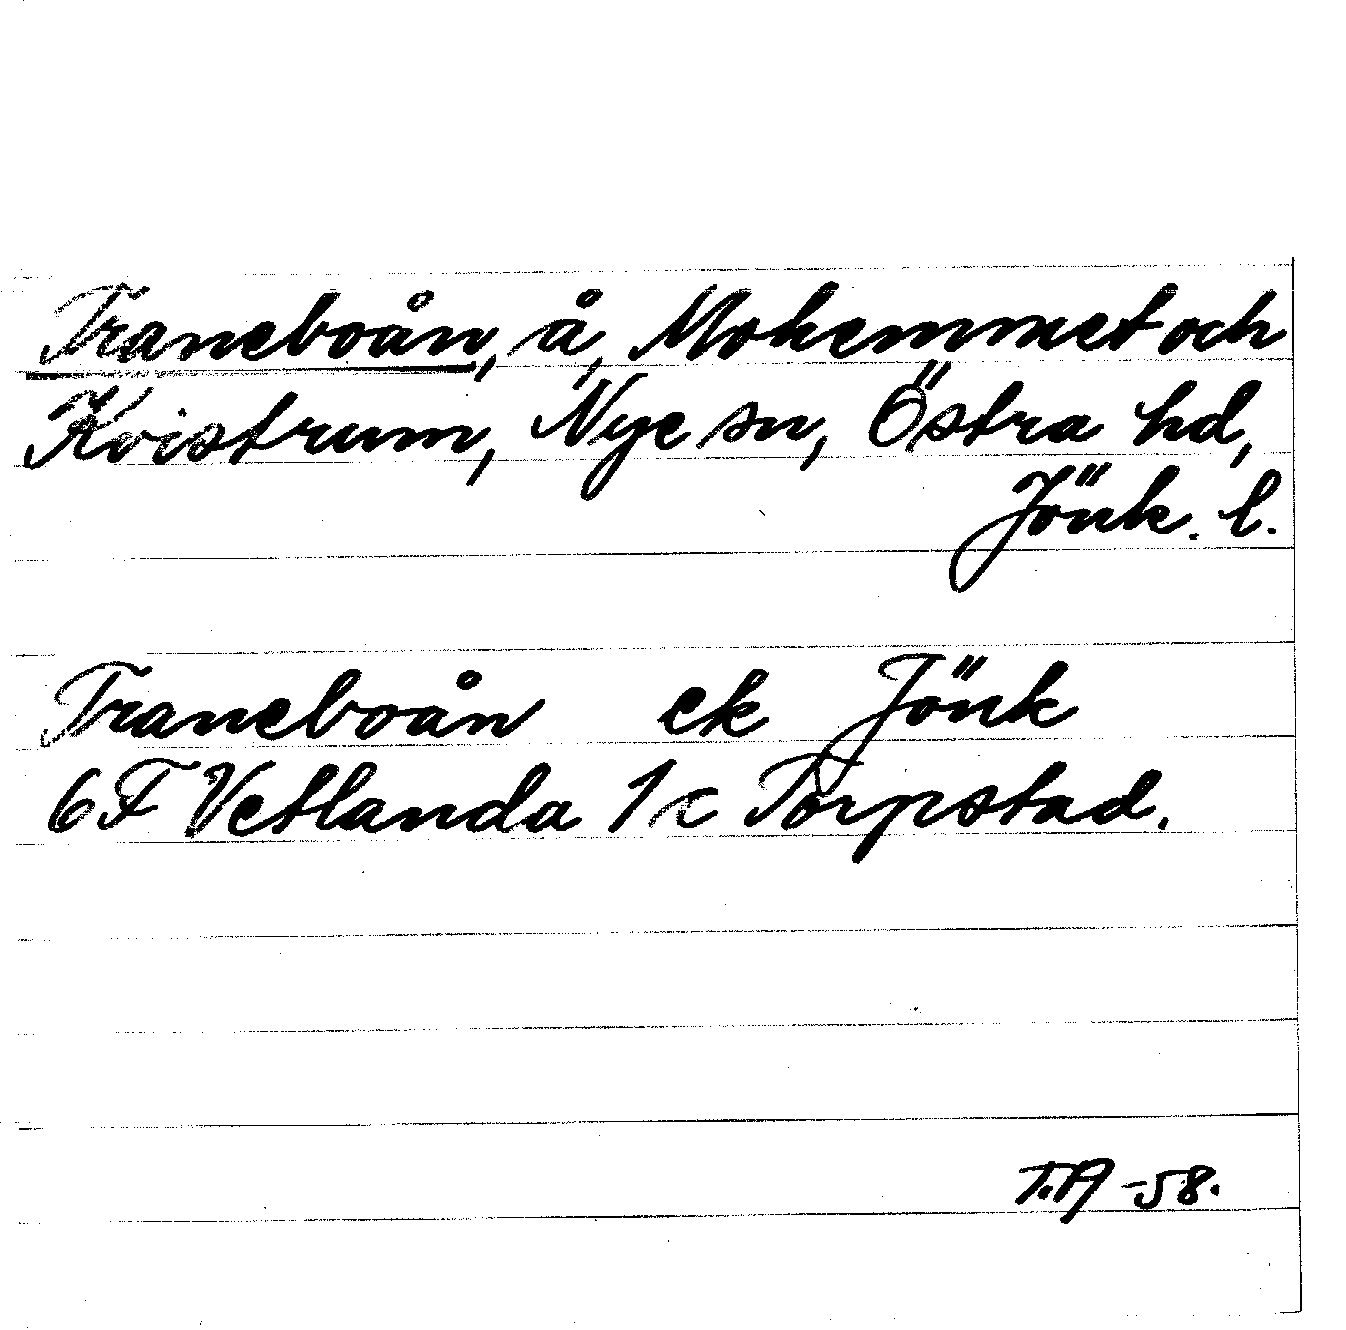 Traneboån, å, Mohemmet och
Kvistrum, Nye sn, Östra hd,
Jönk. l.
Traneboån ek Jönk
6F Vetlanda 1 c Torpstad.
T.A -58.